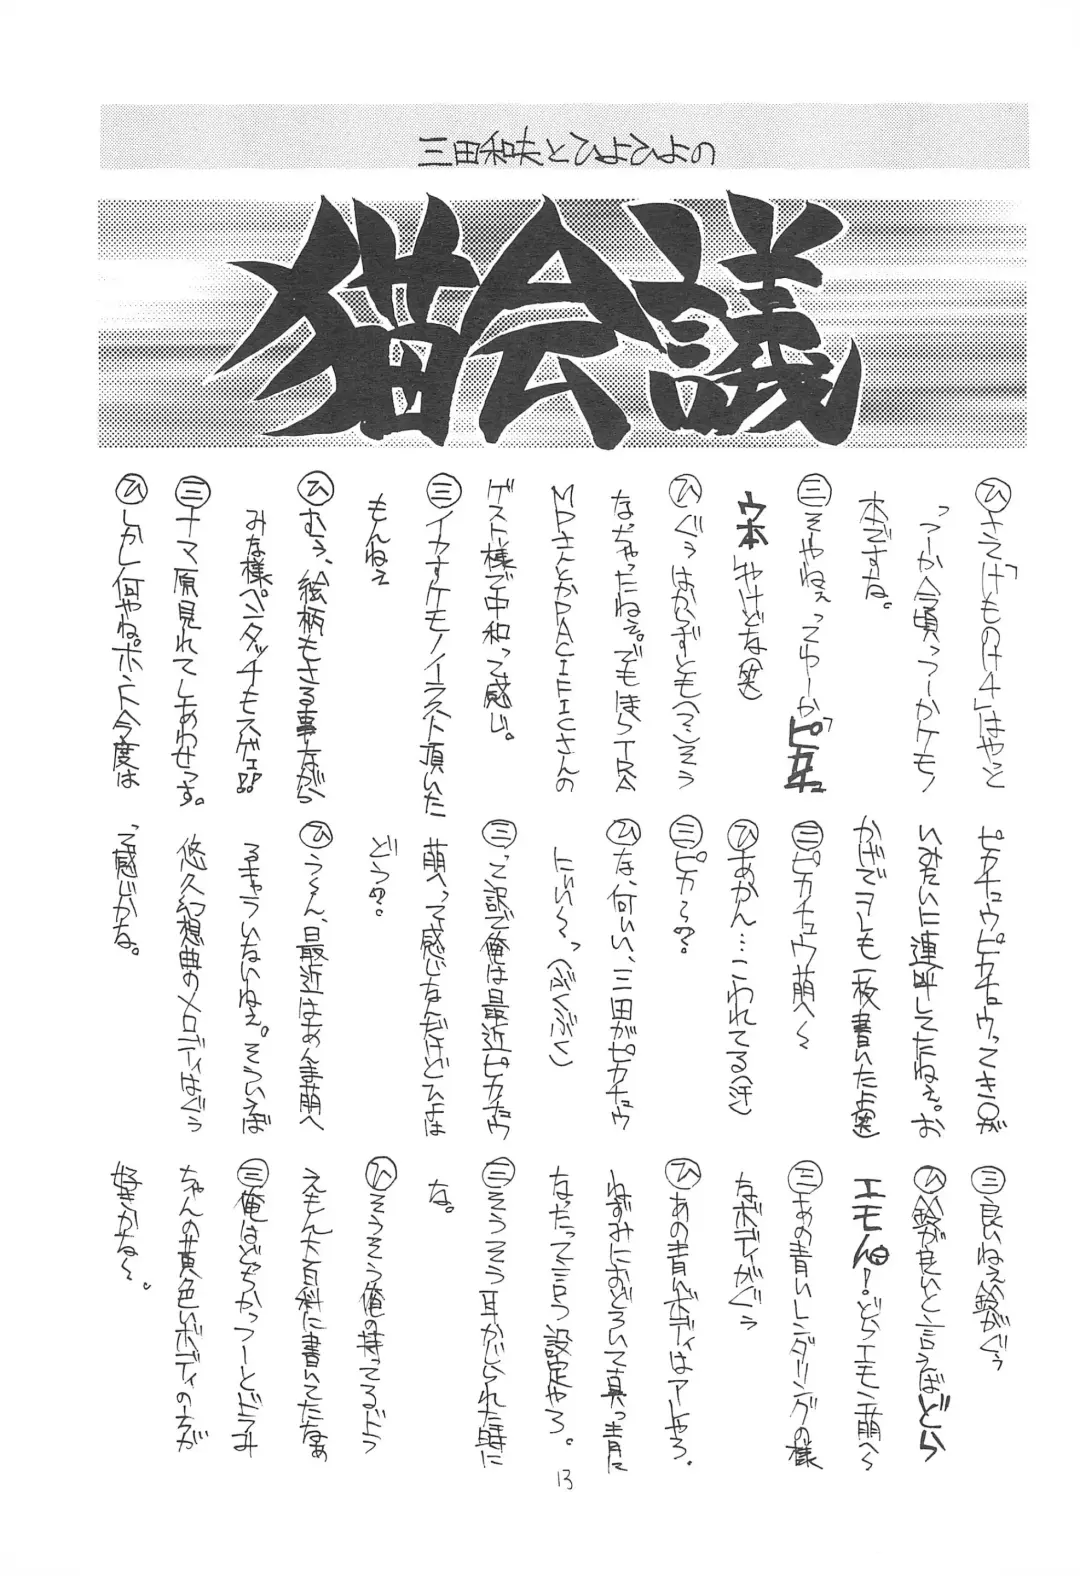 三田和夫とひよひよの
猫会議
ひ さて「けもの汁4」はやっと
つーか今頃っつーかケモノ
本ですな。
三 そやねぇってゆーか「ピカチュ
ウ本」やけどな(笑)
ひ ぐぅ はからずとも(^^;)そう
なっちゃったねぇ。でもほらTRA
MPさんとかPACIFICさんの
ゲスト様で中和って感じ。
三 イカすケモノイラスト頂いた
もんねぇ
ひ むぅ、絵柄もさる事ながら
みな様ペンタッチもスゲェ!!
三 ナマ原見れてしあわせっす。
ひ しかし何やね。ホント今度は
ピカチュウピカチュウってき○が
いみたいに連呼してたねぇ。お
かげでヲレも一枚書いたよ(笑)
三 ピカチュウ萌へ〜
ひ あかん…こわれてる(汗)
三 ピカ〜?
ひ な、何ぃぃ、三田がピカチュウ
にぃぃ〜っ(ぶくぶく)
三 って訳で俺は最近ピカチュウ
萌へって感じなんだけどひよは
どう?
ひ う〜ん、最近はあんま萌へ
るキャラいないねぇ。そういえば
悠久幻想曲のメロディはぐぅ
って感じかな。
三 良いねぇ鈴がぐぅ
ひ 鈴が良いと言うばどら
エモん!どらエモン萌へ〜
三 あの青いレンダリングの様
なボディがぐぅ
ひ あの青いボディはアレやろ。
ねずみにおどろいて真っ青に
なったって言う設定やろ。
三 そうそう耳かじられた時に
な。
ひ そうそう俺の持ってるドラ
えもん大百科に書いてたなぁ
三 俺はどっちかっつーとドラミ
ちゃんの黄色いボディの方が
好きかな〜。
13